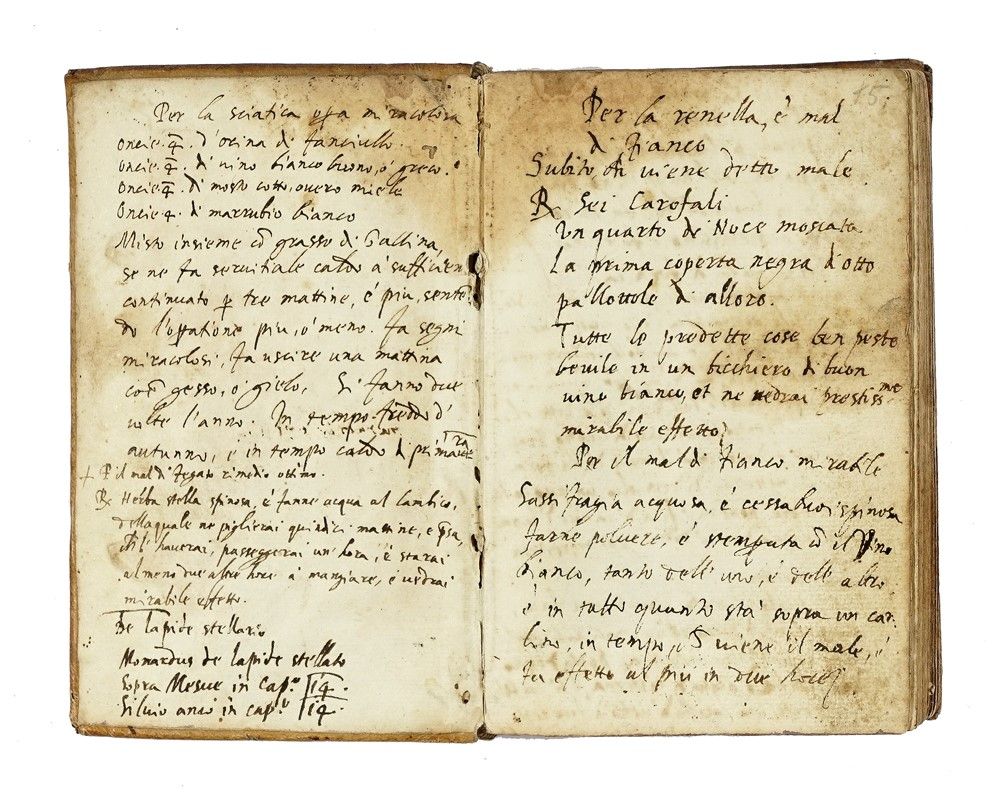 Per la sciatica cosa miracolosa
oncie 4. d'orina di fanciullo.
oncie 4. di vino bianco buono, o greco.
oncie 4. di mosto cotto, overo miele
Oncie 4. di marrubio bianco
Misto insieme cō grasso di Gallina,
se ne fa servitiale caldo à sufficien
continuato p tre mattine, è più, senten
do l'opatione più, ò meno. fa segni
miracolosi, fa uscire una mattina
come gesso, ò gielo. Si fanno due
volte l'anno. In tempo freddo d'
autunno, e in tempo caldo di primavera
+ P il mal di fegato rimedio ottimo.
℞ Herba stella spinosa, è fanne acqua al lambico,
dellaquale ne piglierai quindici mattine, e psa
ch l'haverai, passeggerai un'hora, è starai
almeno due altre hore à mangiare, è vedrai
mirabile effetto.
De lapide stellario
Monardus de lapide stellato
sopra Mesue in cap.º 14.
Silvio anco in cap.º 14.
15.
Per la renella, è mal
di fianco
Subito ch viene detto male
℞ Sei Garofali
Un quarto di Noce moscata.
La prima coperta negra d'otto
pallottole di alloro.
Tutte le predette cose ben peste
bevile in un bicchiero di buon
vino bianco, et ne vedrai prestiss.me
mirabile effetto.
Per il mal di fianco mirabile
Sassifragia acquosa, è spinosa
farne polvere, è stemprata cō il Vino
bianco, tanto dell'uno, è dell'altro
è in tutto quanto sta sopra un car
lino, in tempo, ch viene il male, è
fa effetto al più in due hore